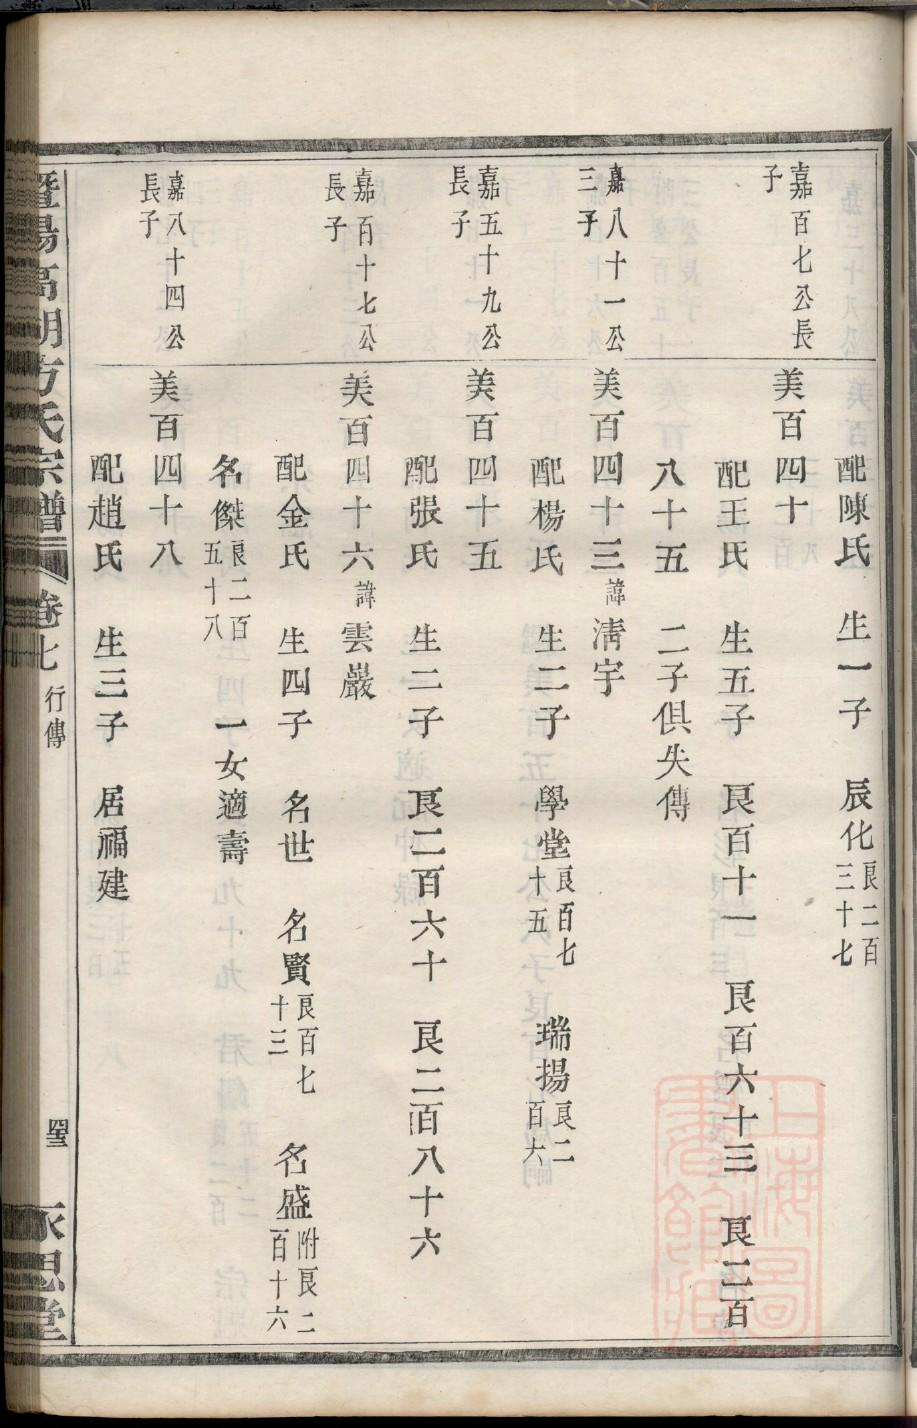 配陳氏 生一子 辰化艮二百三十七
嘉百七公長子
美百四十
配王氏 生五子 艮百十一 艮百六十三 艮二百
八十五 二子俱失傳
嘉八十一公三子
美百四十三諱淸宇
配楊氏 生二子 學堂艮百七十五 瑞揚艮二百六
嘉五十九公長子
美百四十五
配張氏 生二子 艮二百六十 艮二百八十六
嘉百十七公長子
美百四十六諱雲巖
配金氏 生四子 名世 名賢艮百七十三 名盛附艮二百十六
名傑艮二百五十八 一女適壽
嘉八十四公長子
美百四十八
配趙氏 生三子 居福建
暨陽高湖方氏宗譜 卷七 行傳 永思堂
上海圖書館藏